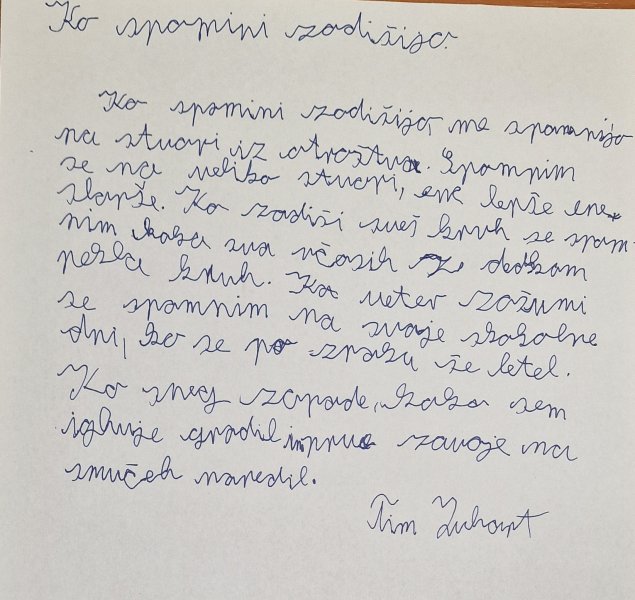 Ko spomini zadišijo.
Ko spomini zadišijo, me spomnijo
na stvari iz otroštva. Spomnim
se na veliko stvari, ene lepše ene
slabše. Ko zadiši svež kruh se spom-
nim kako sva včasih z dedkom
pekla kruh. Ko veter zašumi
se spomnim na svoje skakalne
dni, ko se po zraku še letel.
Ko sneg zapade, kako sem
igluje gradil in prve zavoje na
smučeh naredil.
Tim